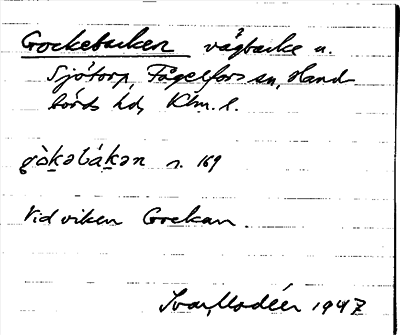 Gockebacken vägbacke u.
Sjötorp, Fågelfors sn, Hand
börds hd, Klm. l.
gòḵəbáḵən s. 169
Vid viken Gockan
Ivar Modéer 1947